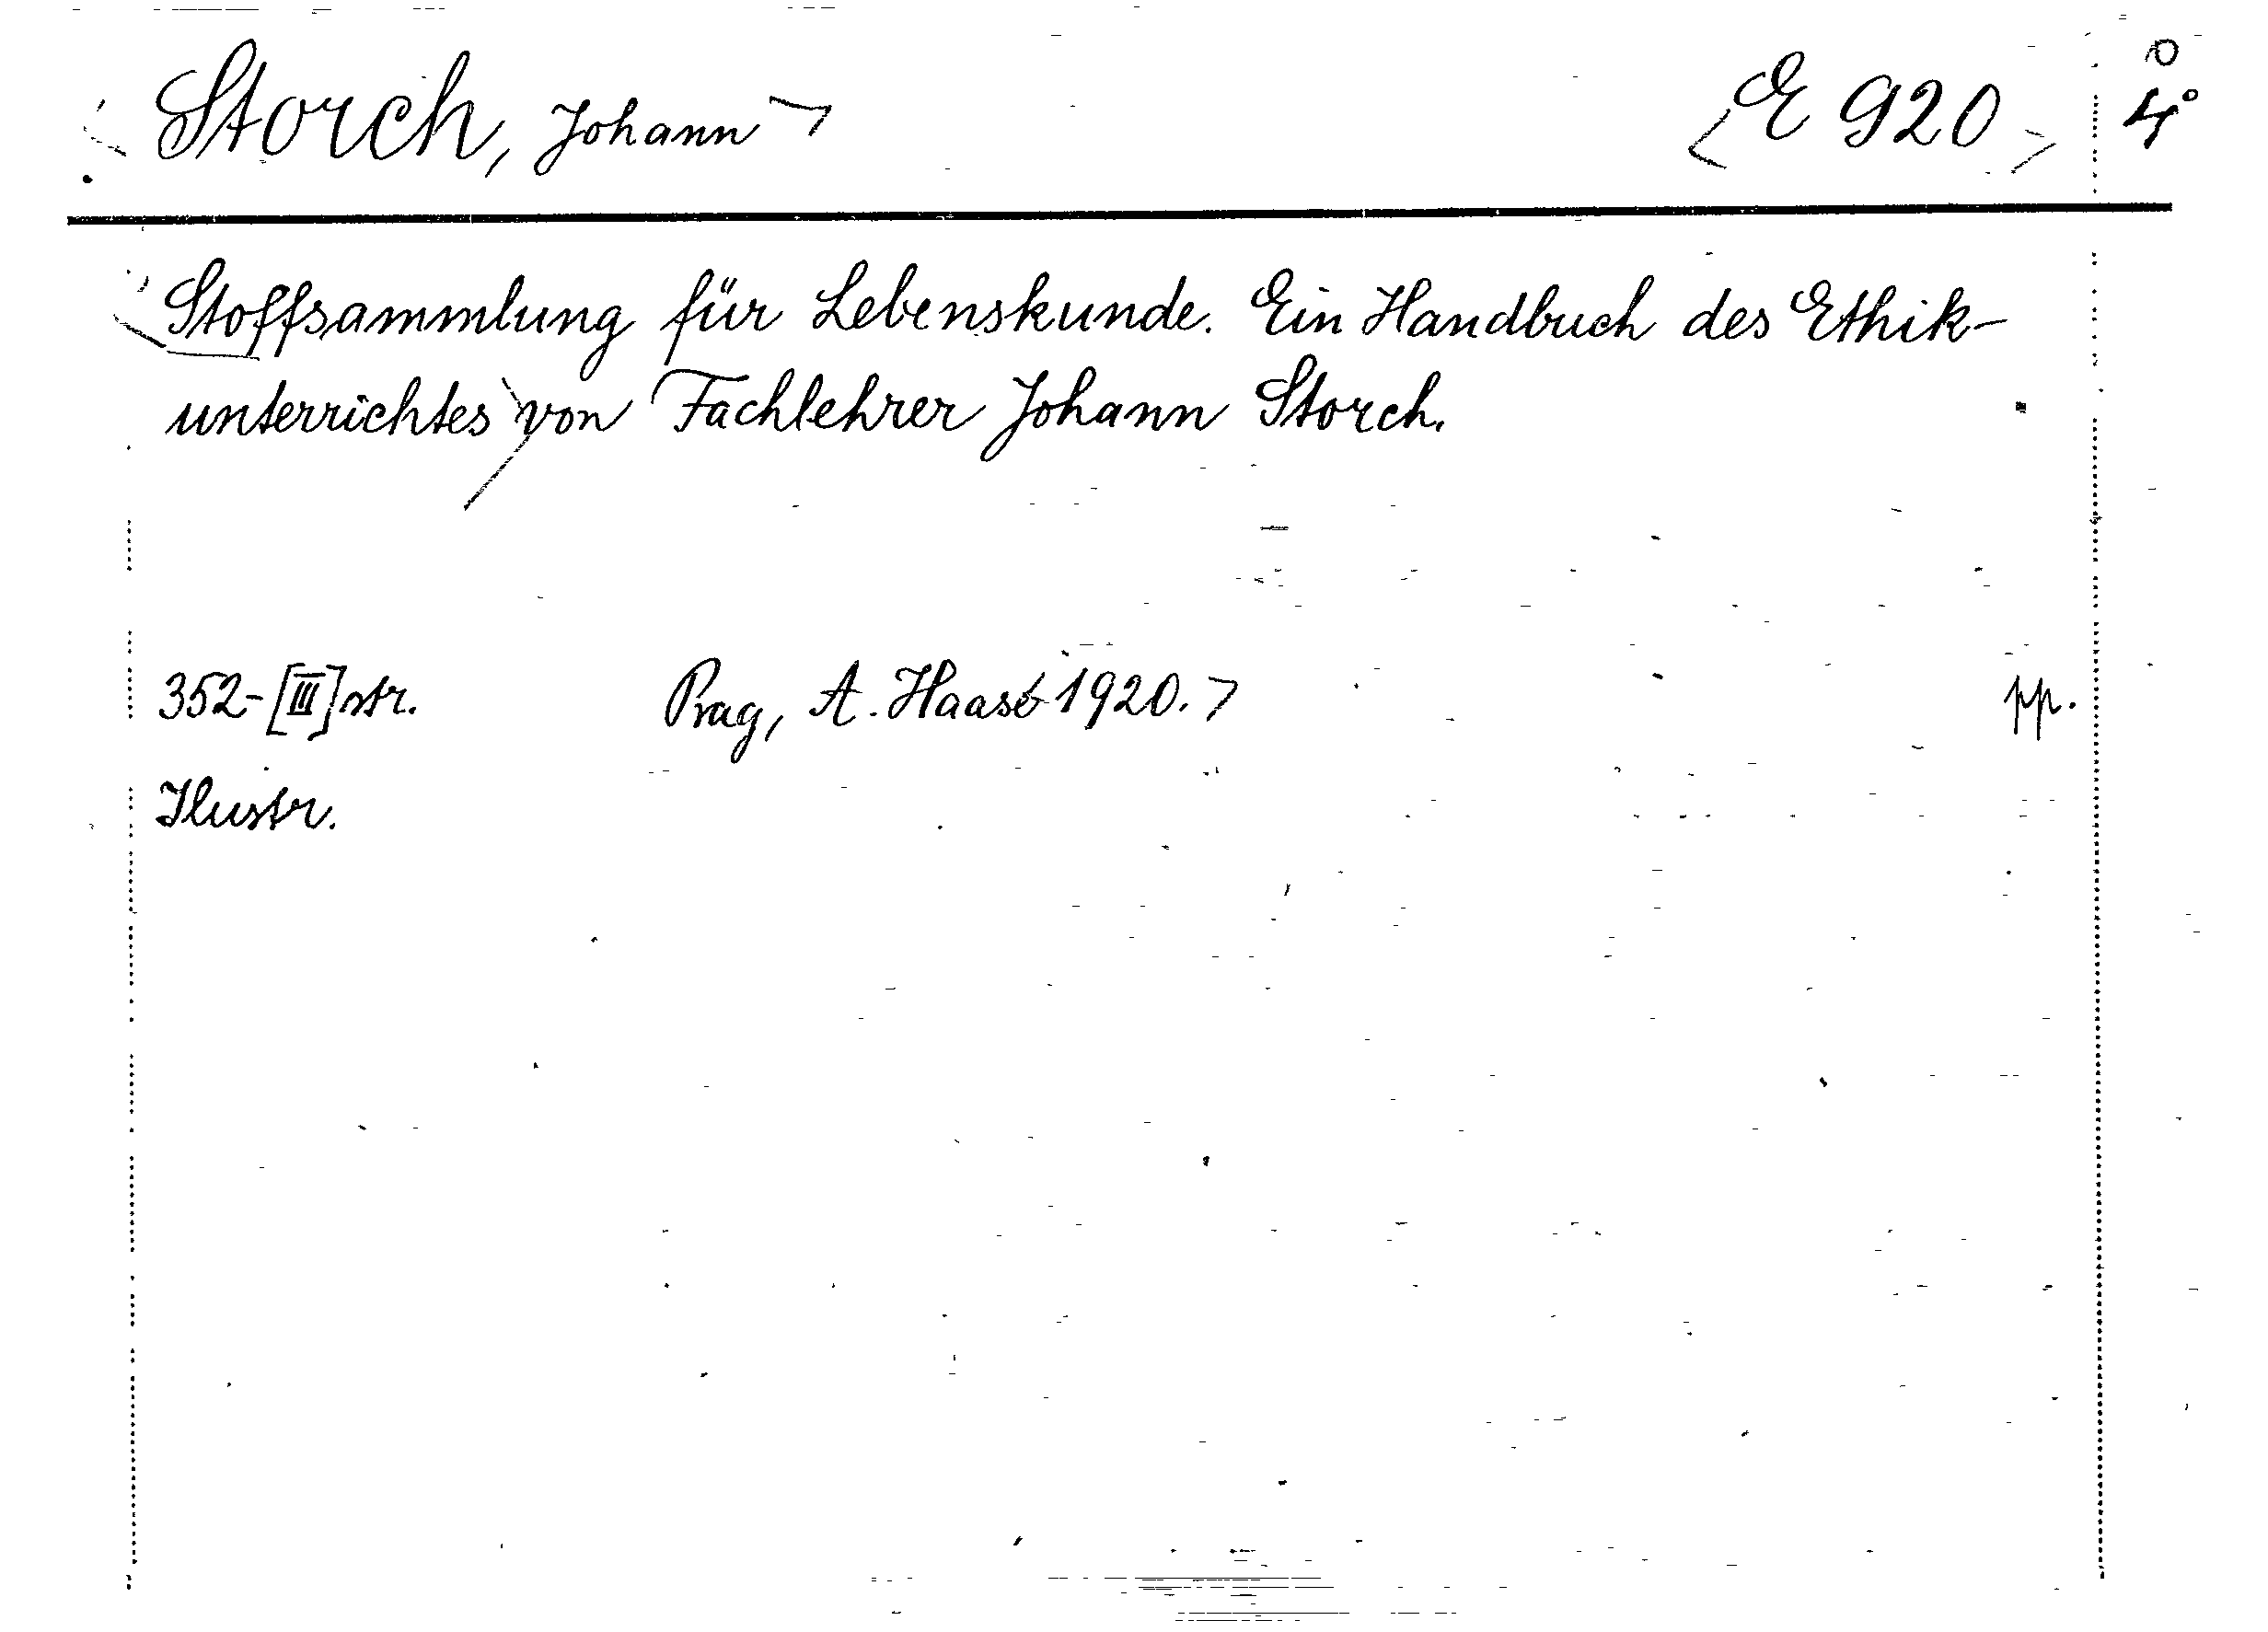 Storch, Johann
E 920
4°
Stoffsammlung für Lebenskunde. Ein Handbuch des Ethik-
unterrichtes von Fachlehrer Johann Storch.
352-[III] str. Prag, A. Haase 1920. pp.
Ilustr.